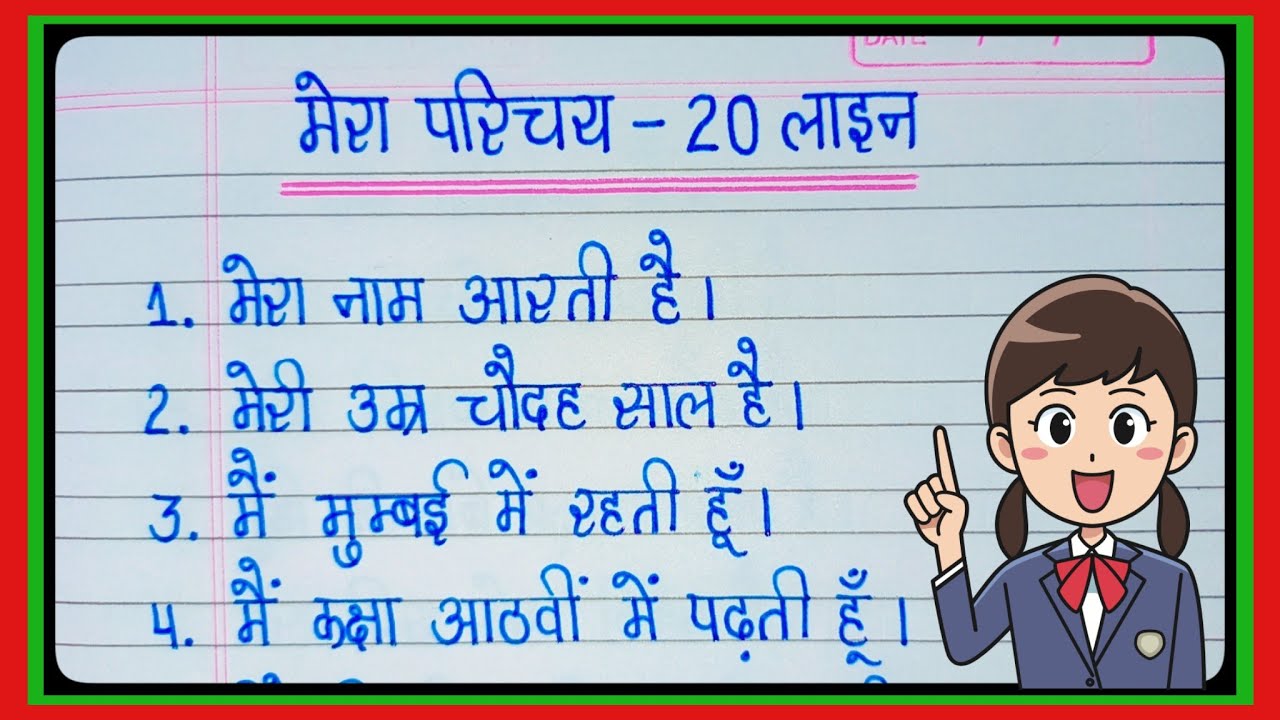 DATE / /
मेरा परिचय - 20 लाइन
1. मेरा नाम आरती है।
2. मेरी उम्र चौदह साल है।
3. मैं मुम्बई में रहती हूँ।
4. मैं कक्षा आठवीं में पढ़ती हूँ।